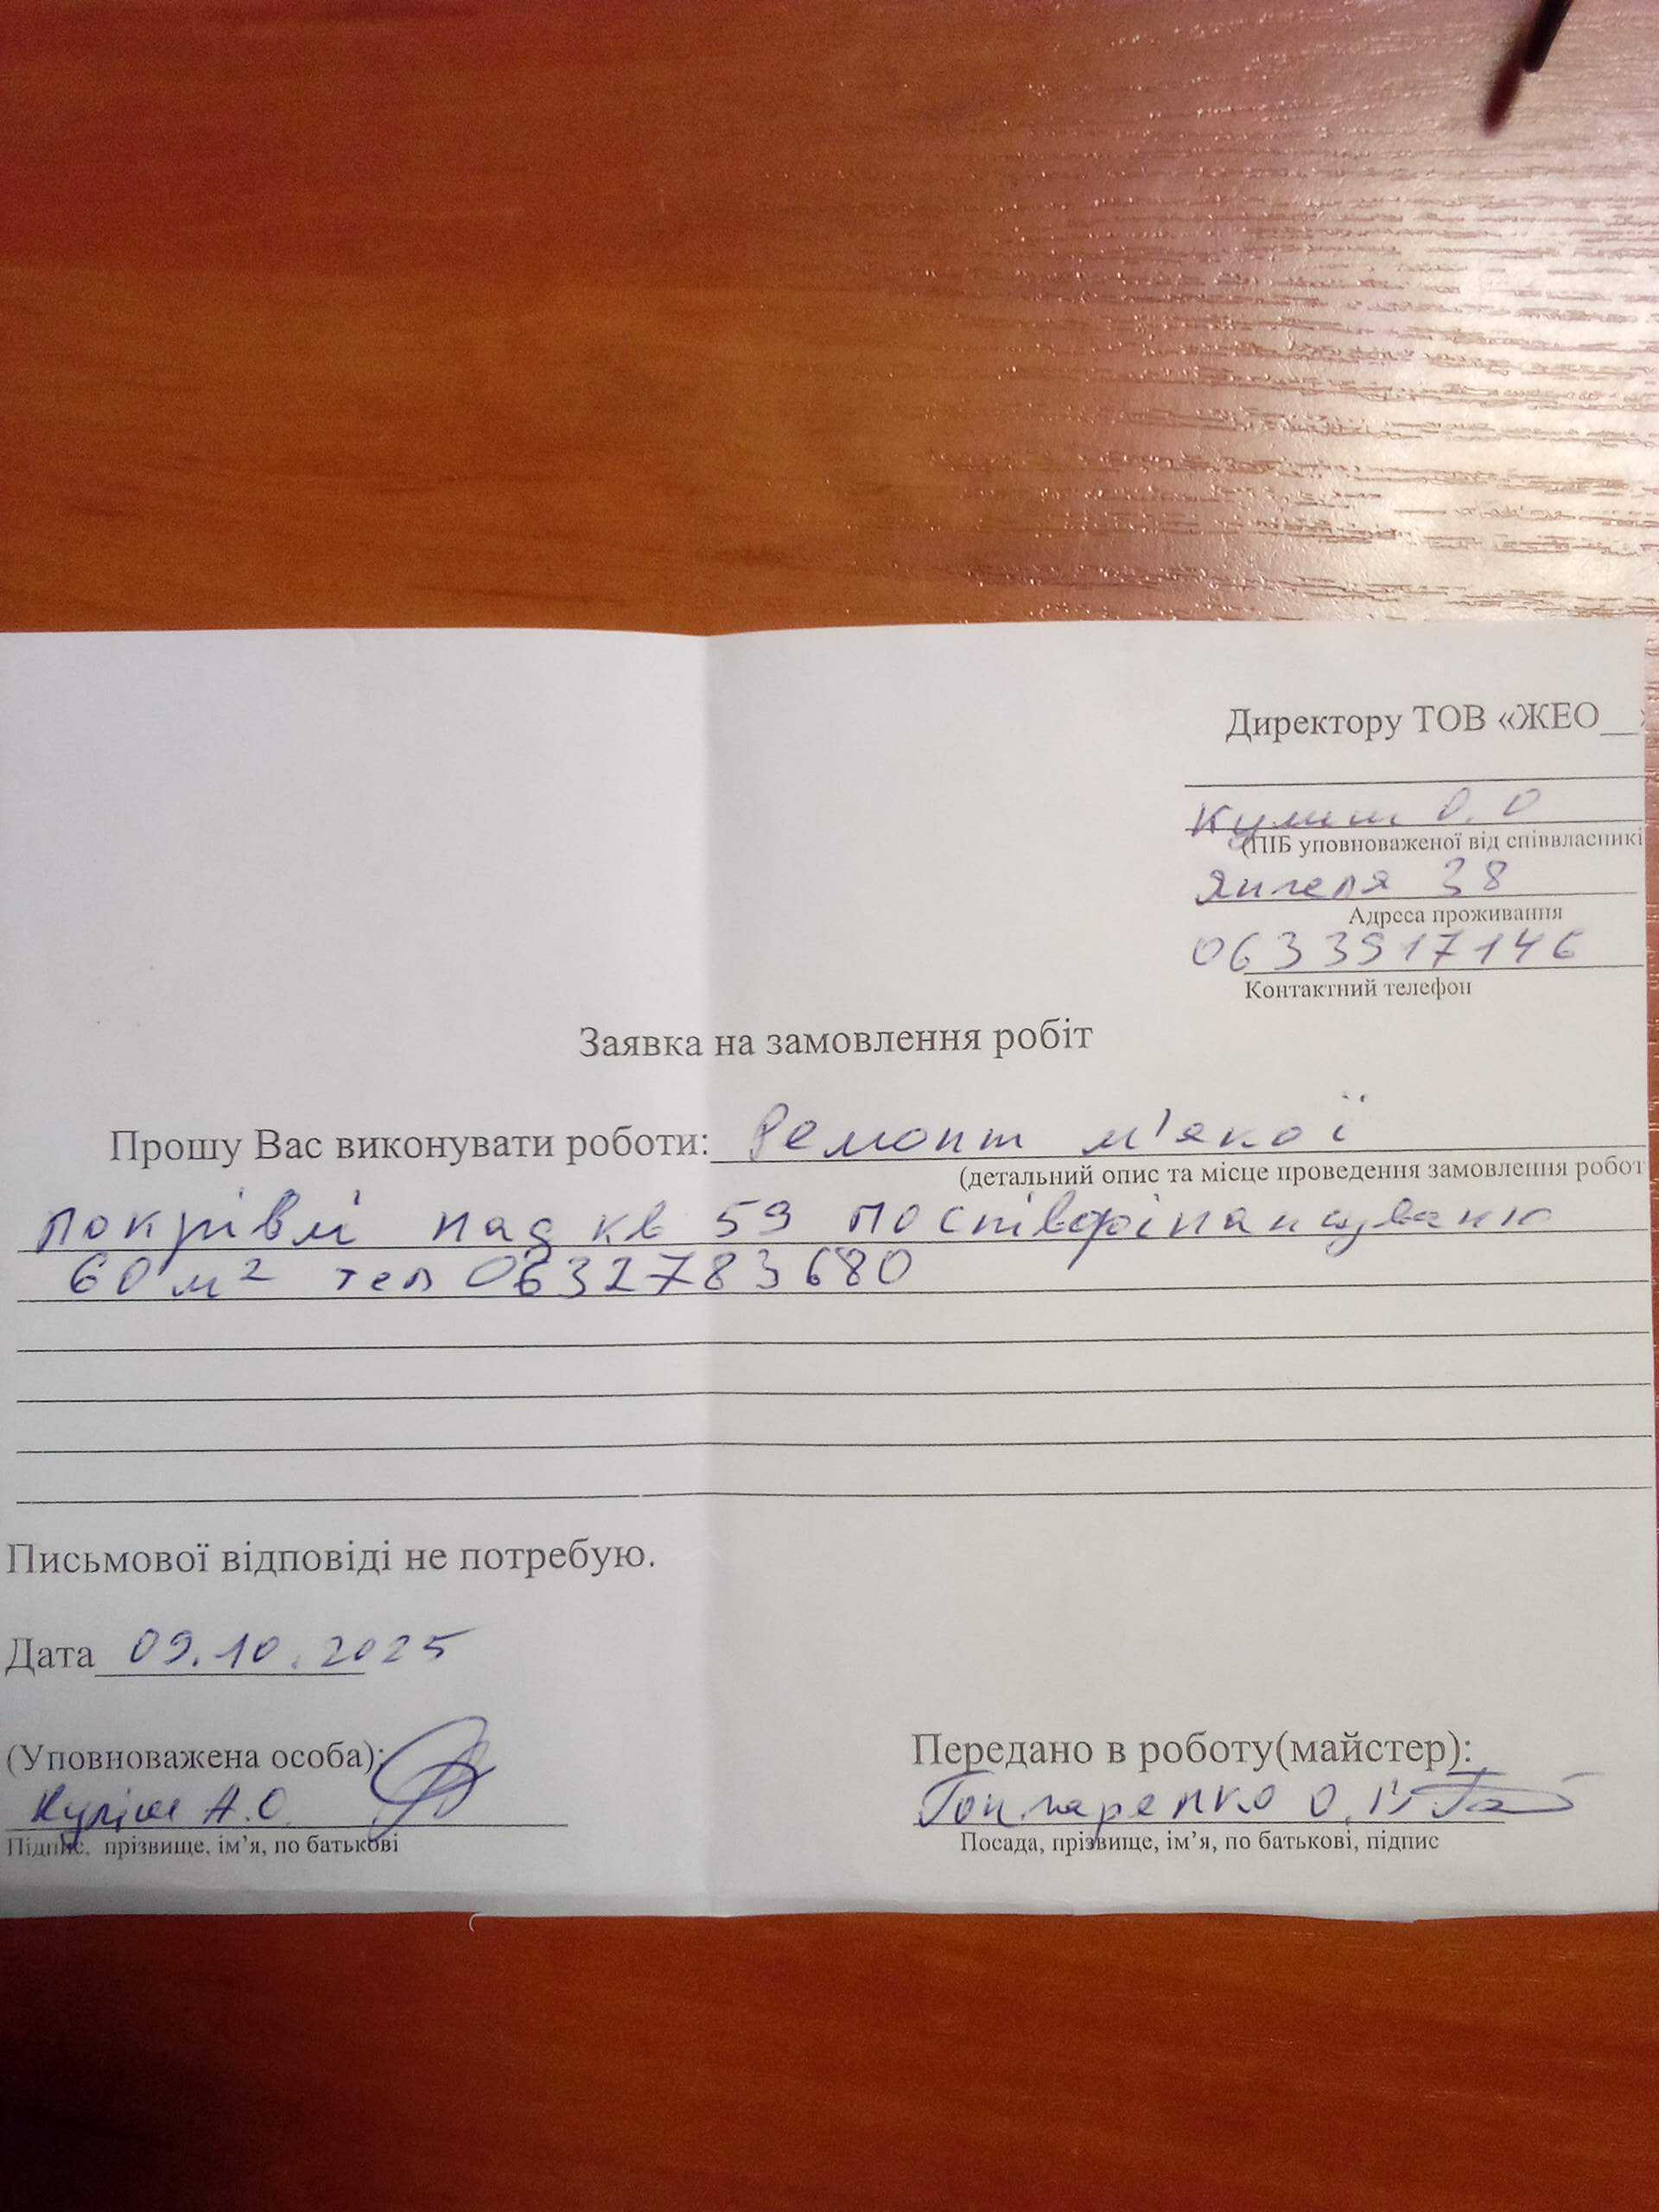 Директору ТОВ «ЖЕО__»
Кулиш О.О
(ПІБ уповноваженої від співвласникі
Янгеля 38
Адреса проживання
0633917146
Контактний телефон
Заявка на замовлення робіт
Прошу Вас виконувати роботи: Ремонт м'якої
(детальний опис та місце проведення замовлення робот
покрівлі над кв 59 по співфінансуванню
60 м² тел 0632783680
Письмової відповіді не потребую.
Дата 09.10.2025
(Уповноважена особа): Передано в роботу(майстер):
Куліш А.О. Гончаренко О.
Підпис, прізвище, ім’я, по батькові Посада, прізвище, ім’я, по батькові, підпис